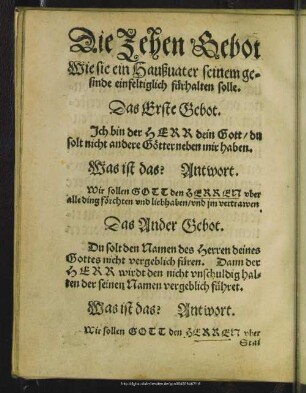 Die Zehen Gebot
Wie sie ein Haußuater seinem ge-
sinde einfeltiglich fürhalten solle.
Das Erste Gebot.
Ich bin der HERR dein Gott / du
solt nicht andere Götter neben mir haben.
Was ist das? Antwort.
Wir sollen GOTT den HERREN vber
alle ding förchten vnd liebhaben / vnd jm vertrawen
Das Ander Gebot.
Du solt den Namen des Herren deines
Gottes nicht vergeblich füren. Dann der
HERR wirdt den nicht vnschuldig hal-
ten der seinen Namen vergeblich führet.
Was ist das? Antwort.
Wir sollen GOTT den HERREN vber